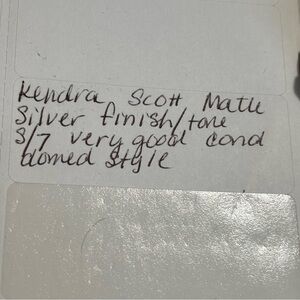 Kendra Scott Matte
Silver finish/tone
S/7 very good cond
domed style